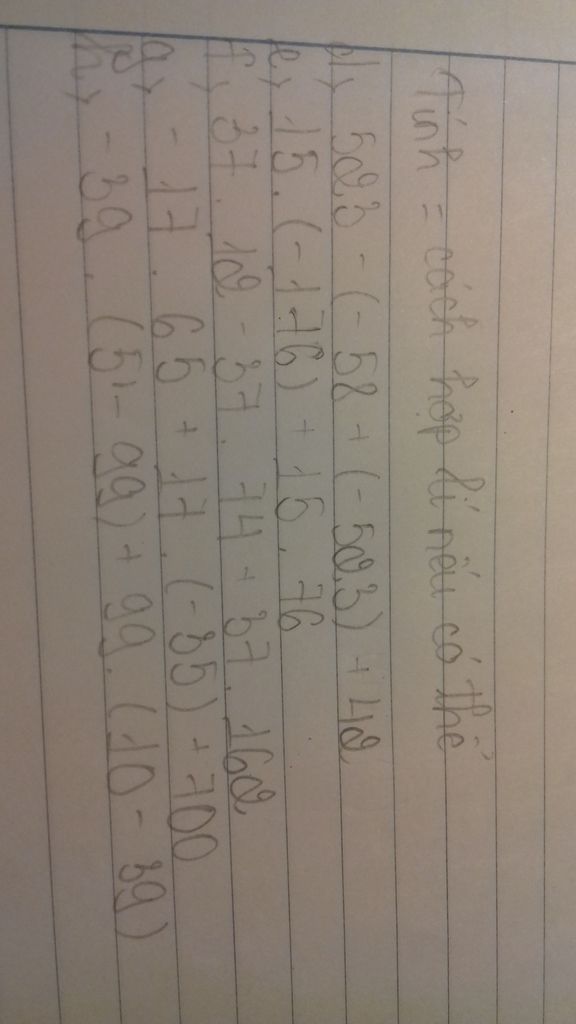 Tính = cách hợp lí nếu có thể
d, 523 - (-58 + (-523) + 42
e, 15 . (-176) + 15 . 76
f, 37 . 12 - 37 . 74 + 37 . 162
g, - 17 . 65 + 17 . (-35) + 700
h, - 39 . (51 - 99) + 99 . (10 - 39)